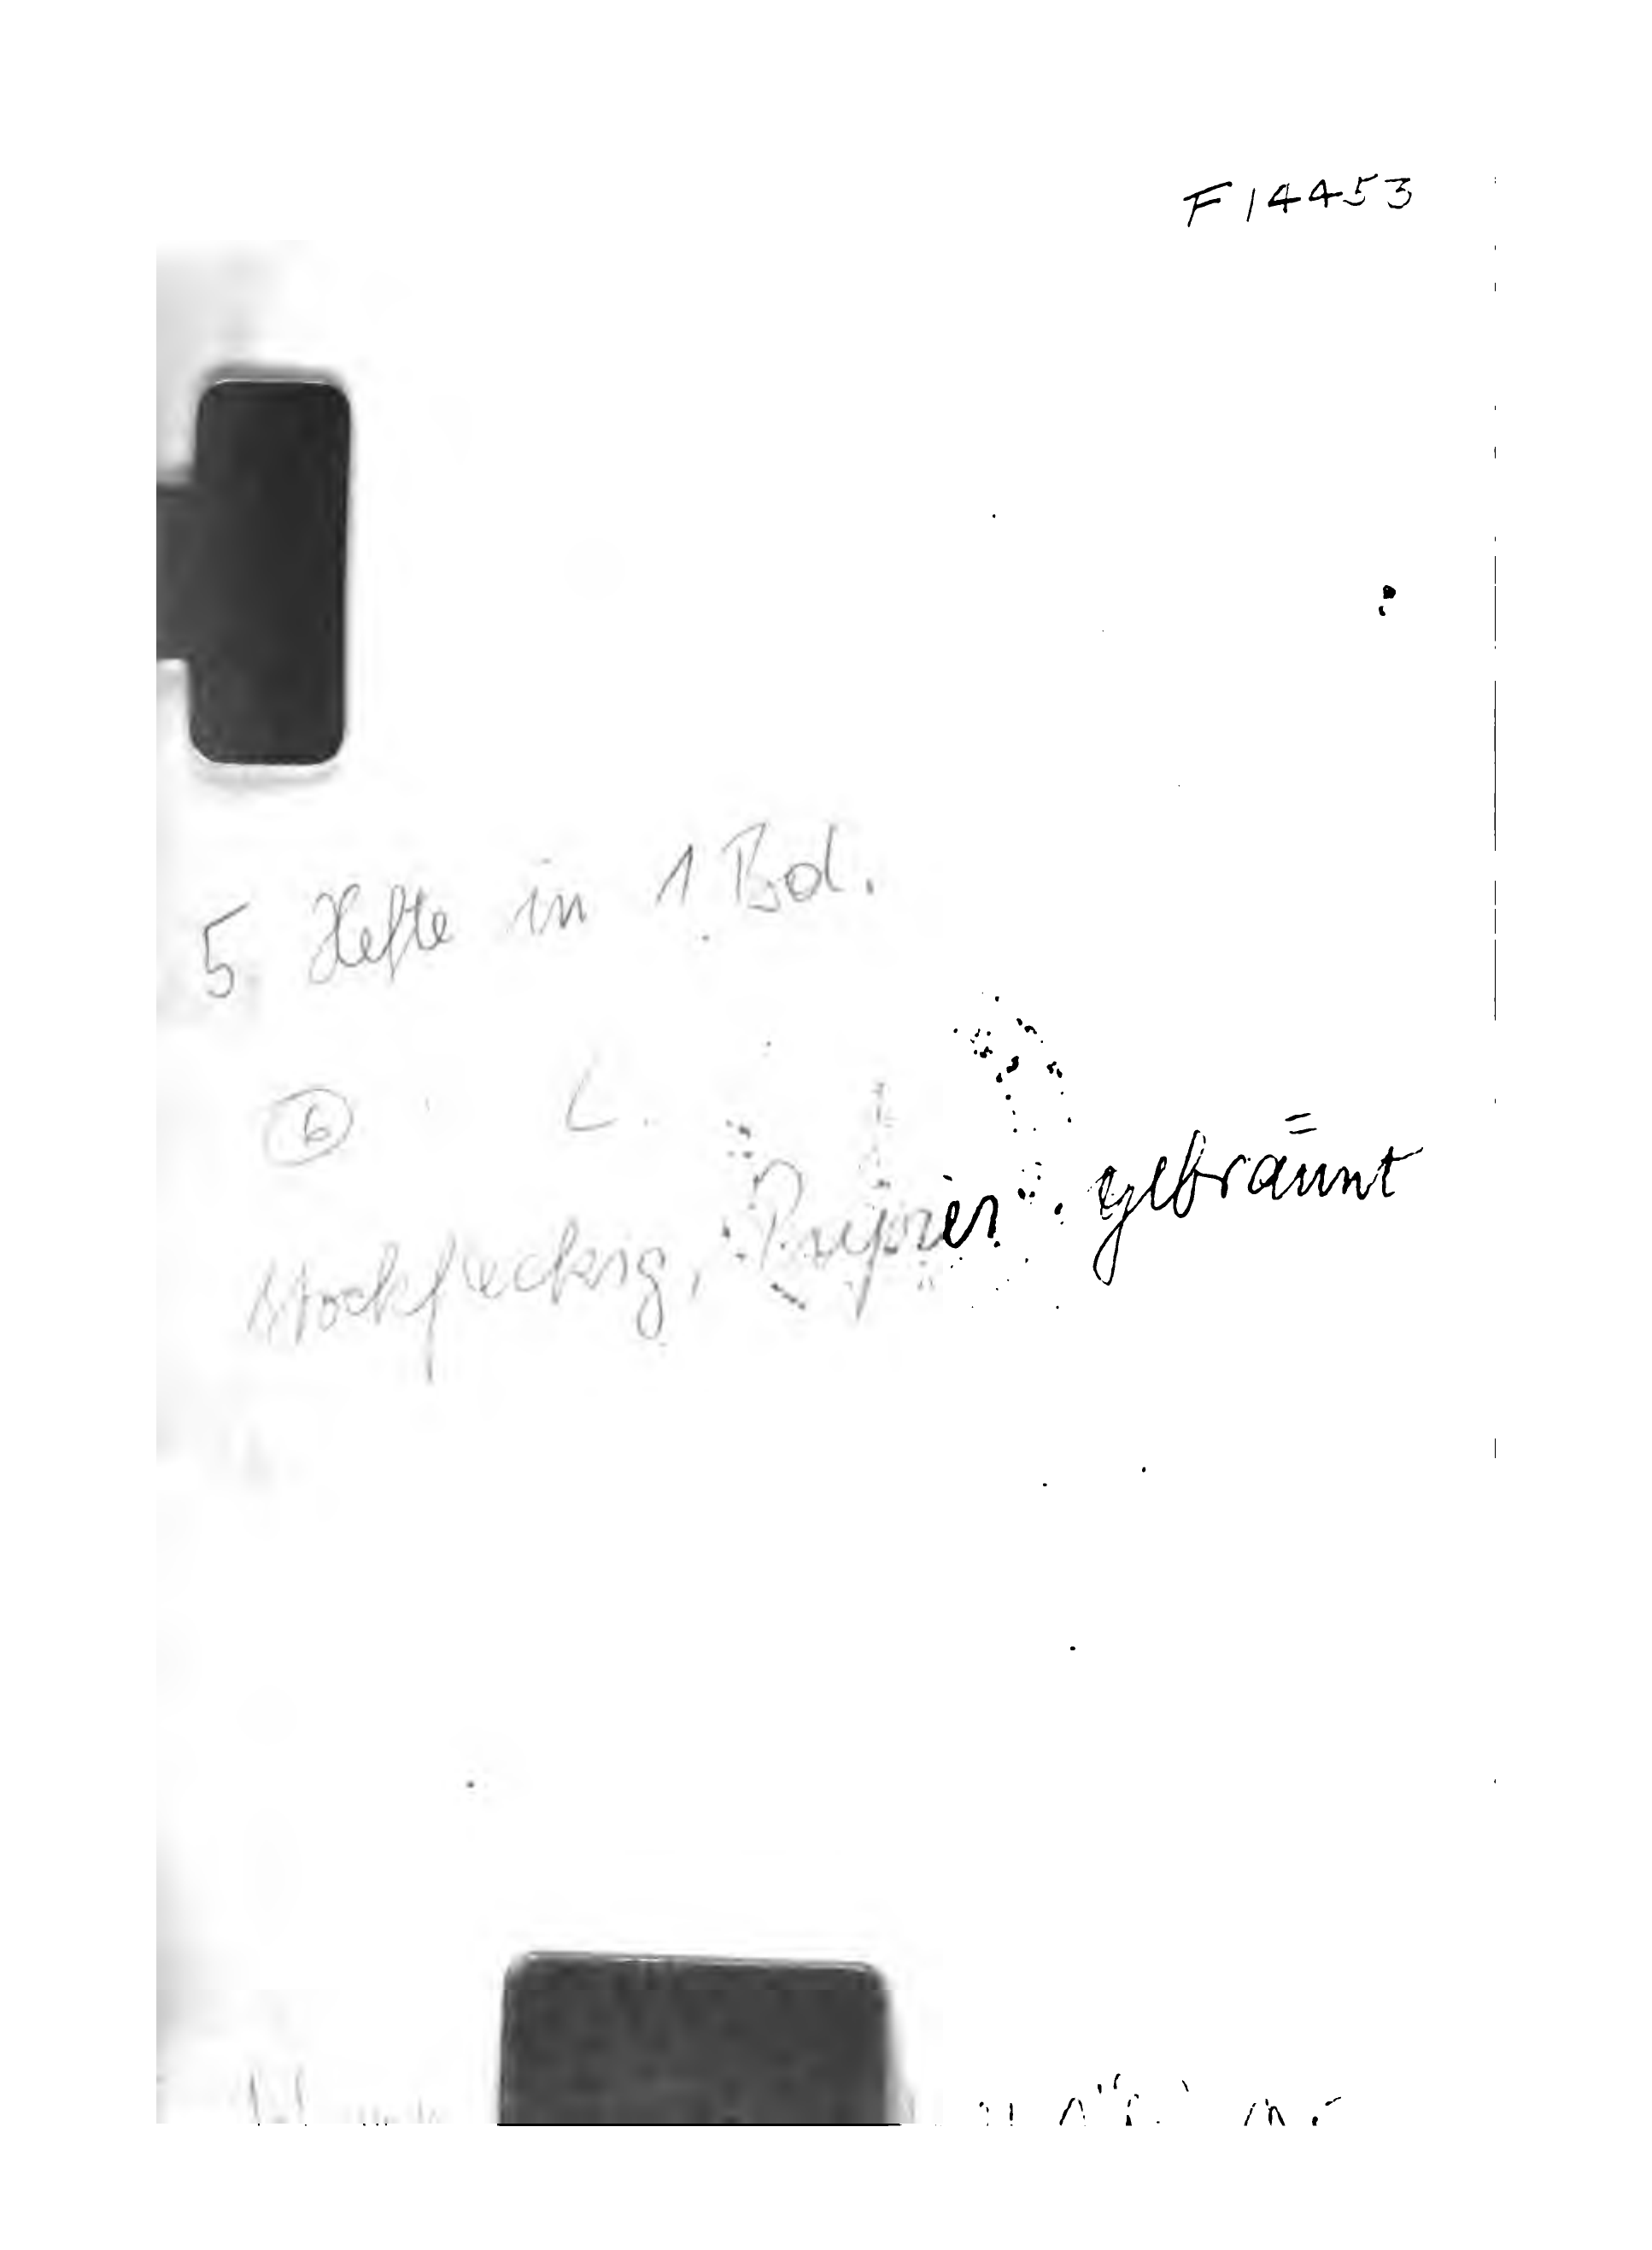 F 14453
5 Hefte in 1 Bd.
6 L.
Stockfleckig, Papier gebräunt